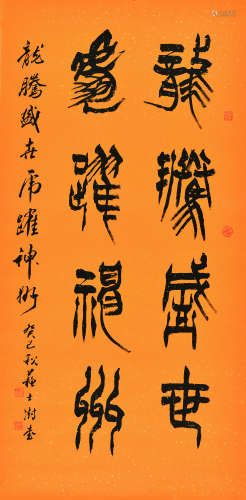 龍騰盛世
虎躍神州
龍騰盛世虎躍神州
癸巳秋蘇士澍書